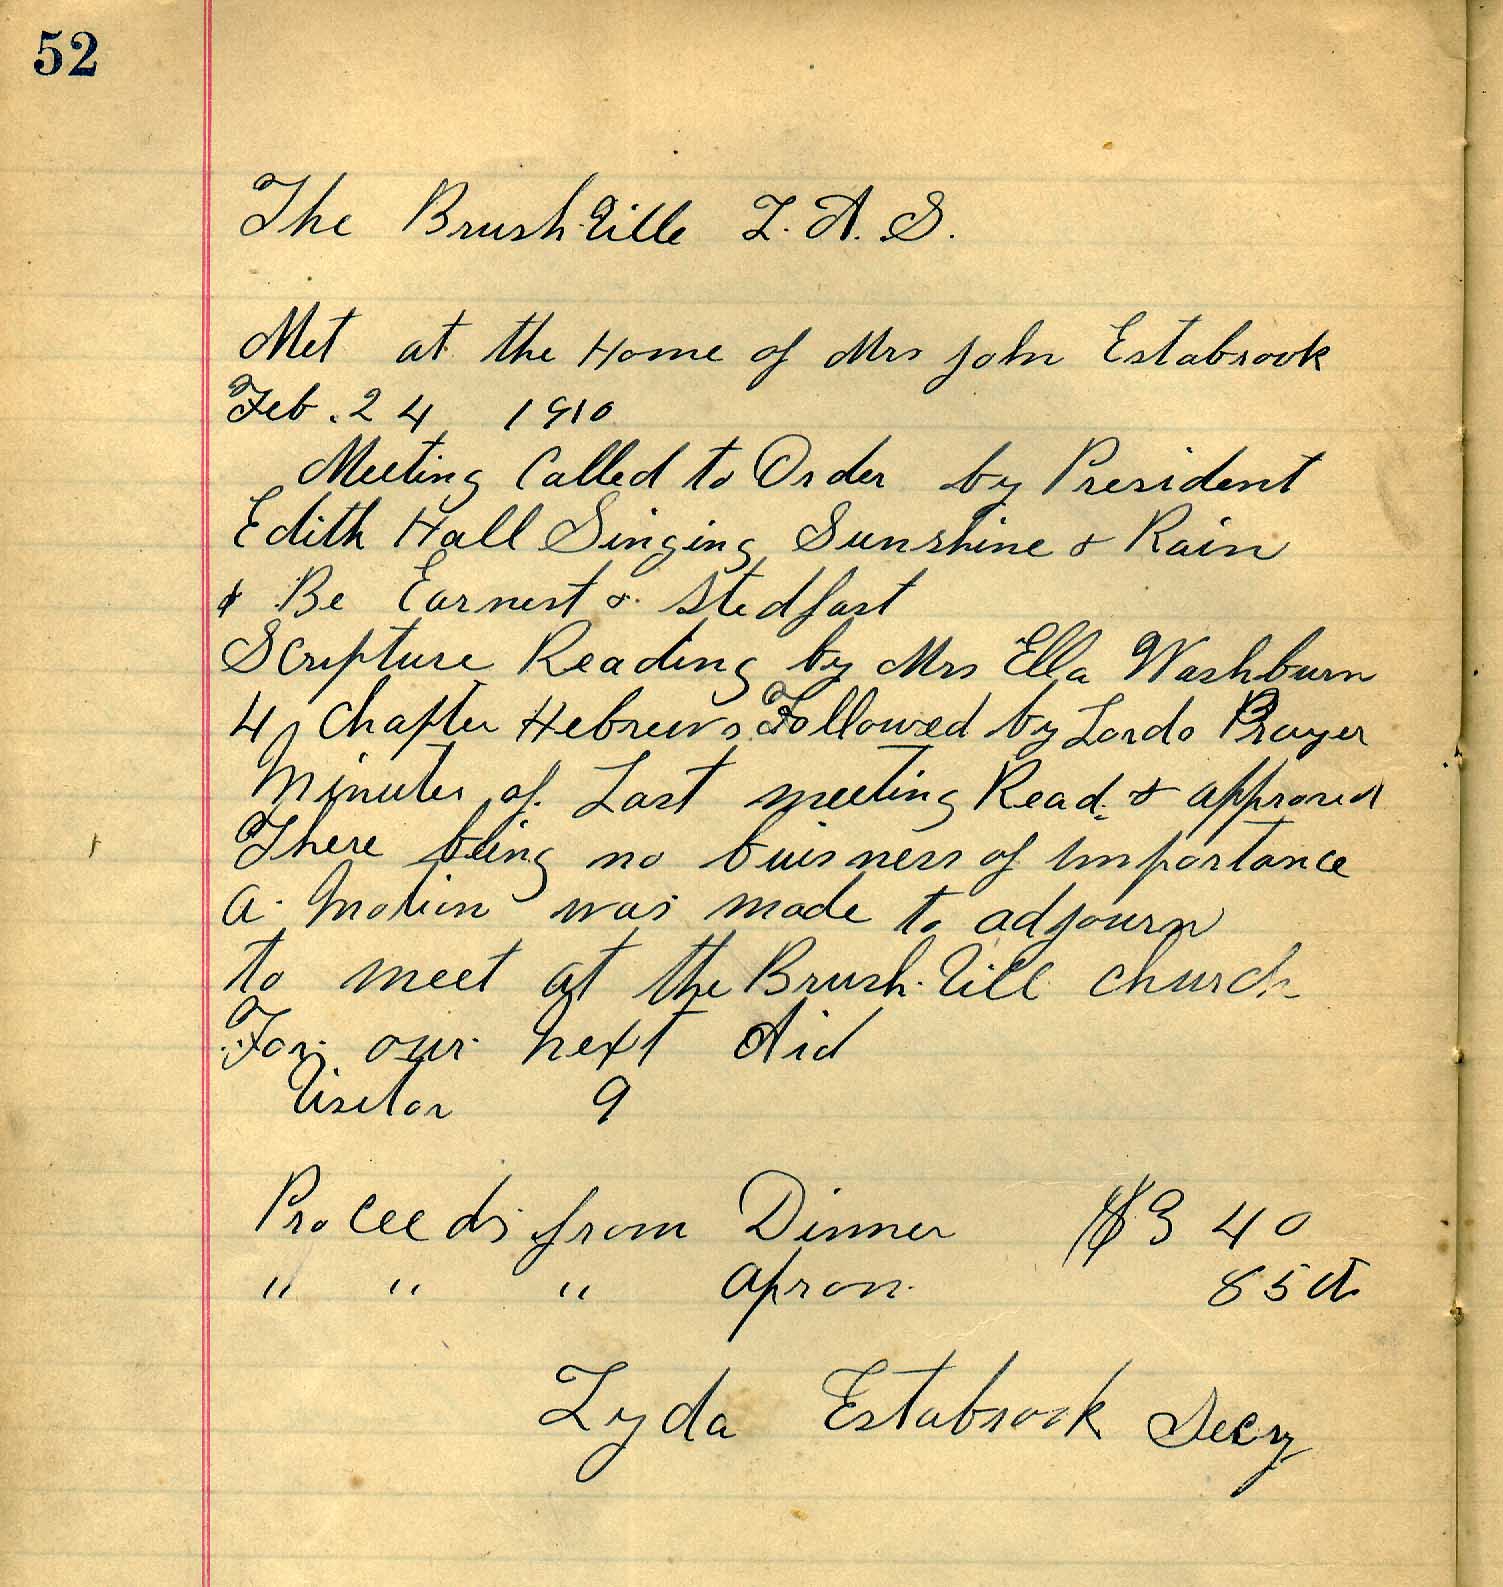 52
The Brushville L. A. S.
Met at the Home of Mrs John Estabrook
Feb. 24 1910
Meeting Called to Order by President
Edith Hall Singing Sunshine & Rain
& Be Earnest & Stedfast
Scripture Reading by Mrs Ella Washburn
4 Chapter Hebrews Followed by Lords Prayer
Minutes of Last meeting Read & approved
There being no buisness of importance
a motion was made to adjourn
to meet at the Brush-vill church
For our next Aid
Visitor 9
Proceeds from Dinner $3 40
" " " apron 85 ct
Lyda Estabrook Secy